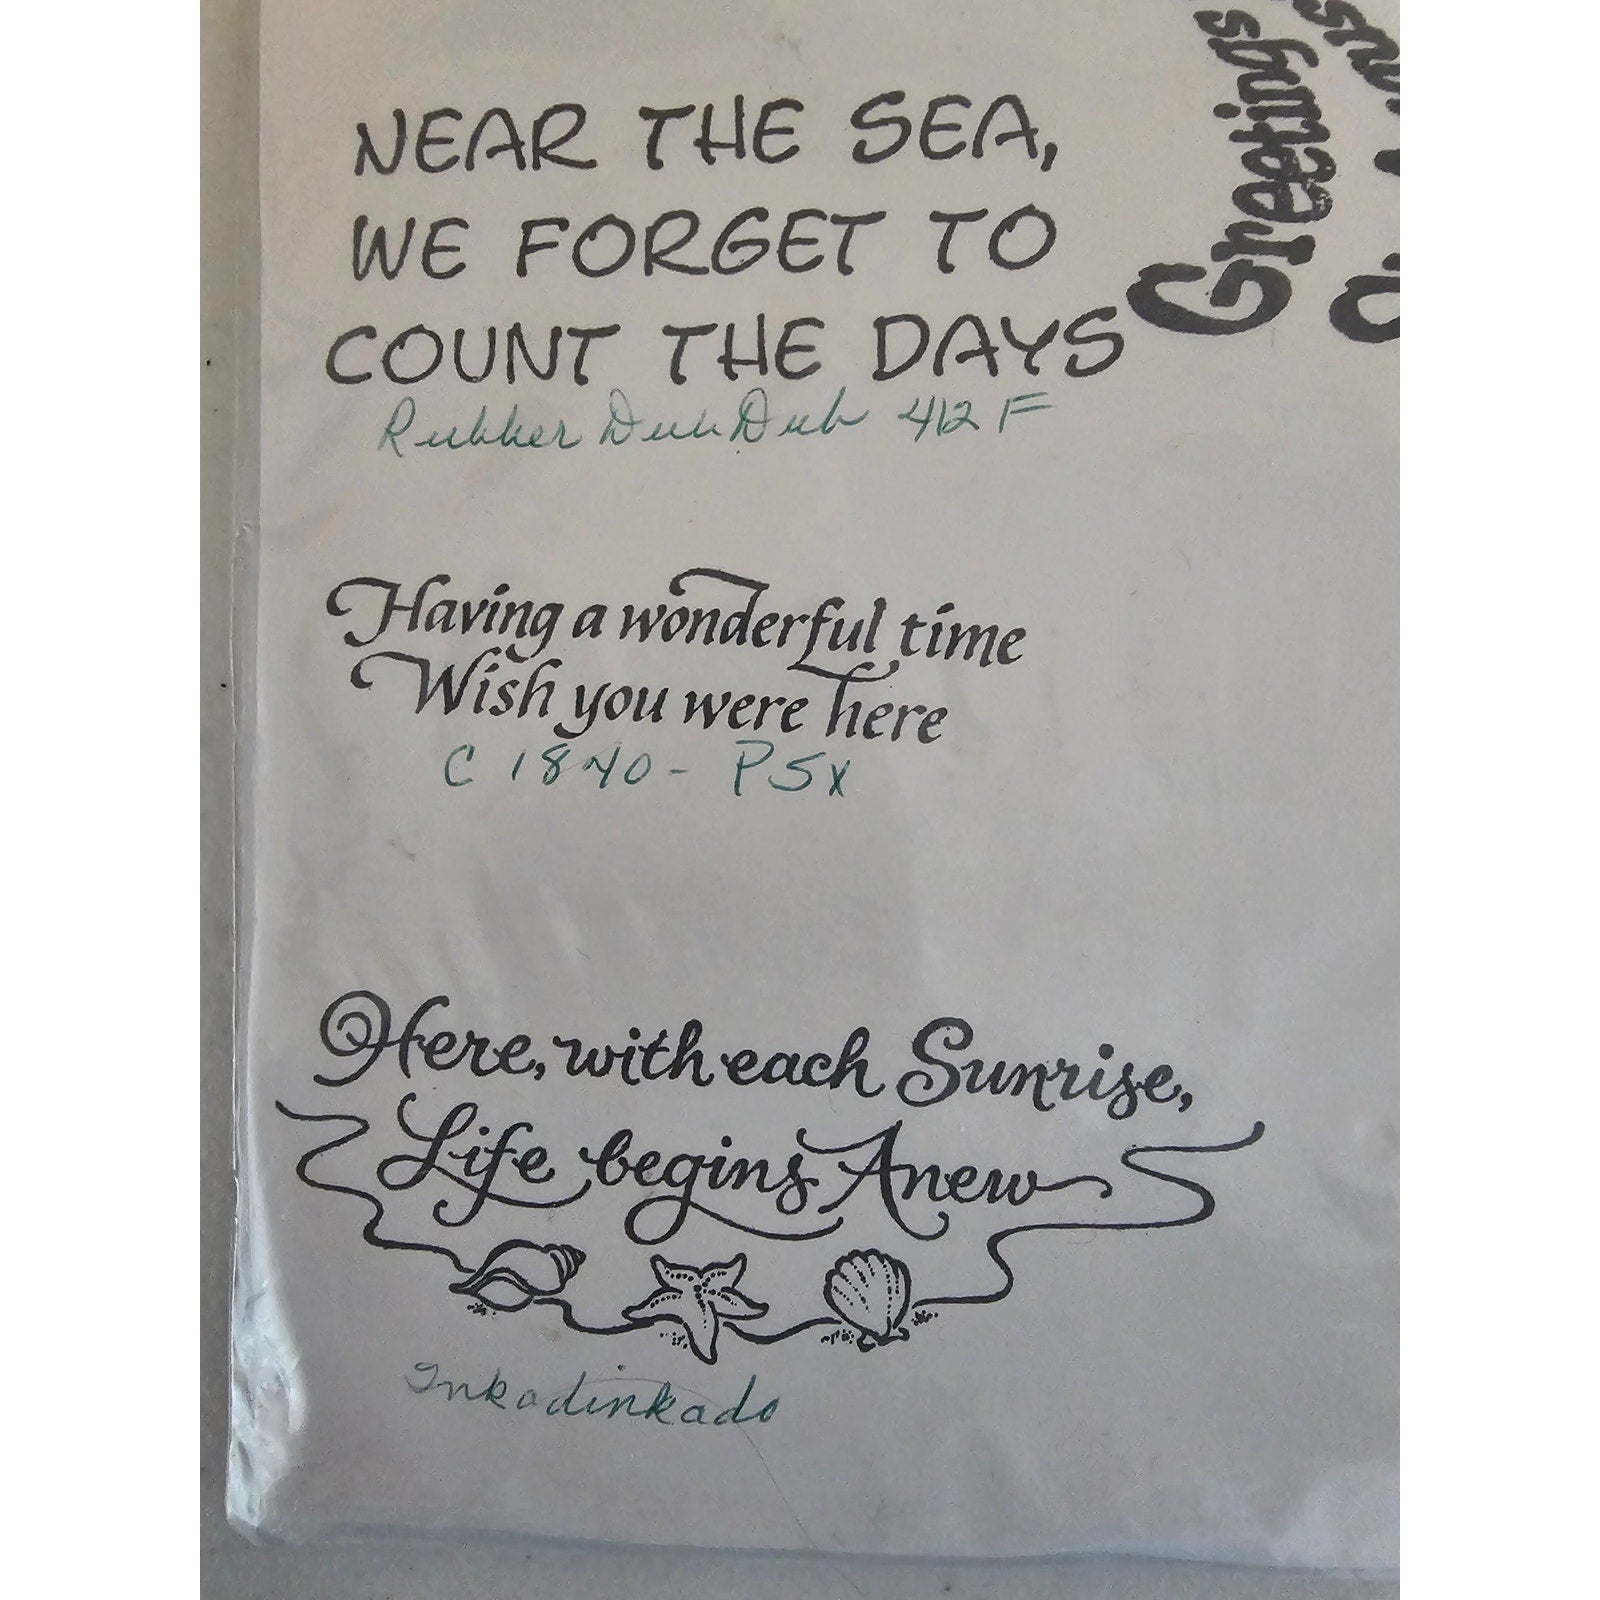 NEAR THE SEA,
WE FORGET TO
COUNT THE DAYS
Rubber Dub Dub 412 F
Greetings
Having a wonderful time
Wish you were here
C 1840 - PSX
Here, with each Sunrise,
Life begins Anew
Inkadinkado